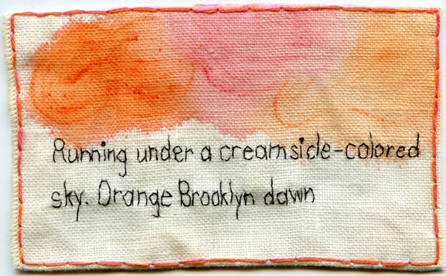 Running under a creamsicle-colored
sky. Orange Brooklyn dawn